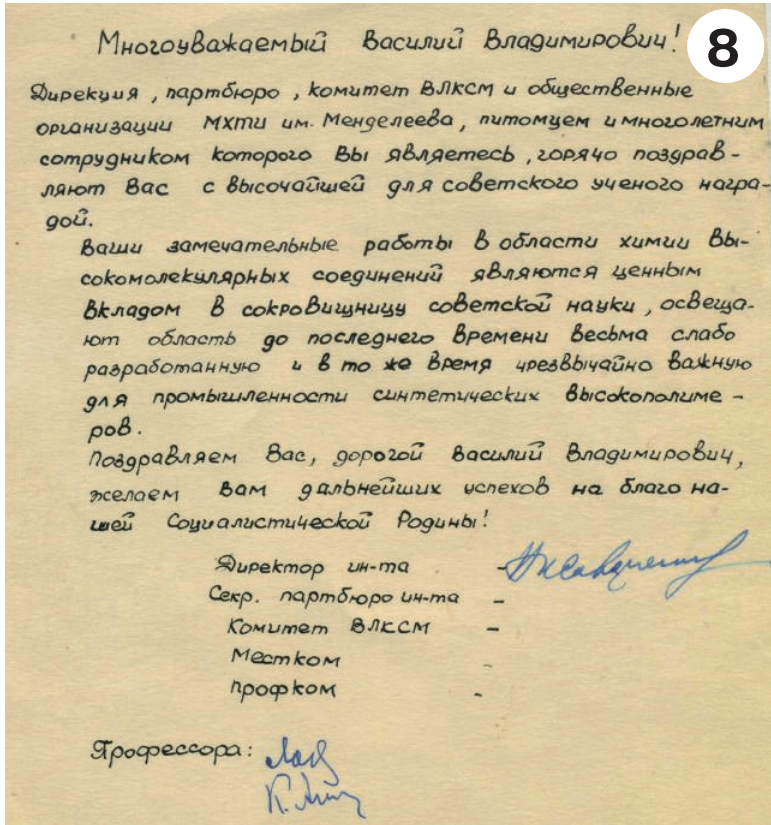 Многоуважаемый Василий Владимирович!
8
Дирекция, партбюро, комитет ВЛКСМ и общественные
организации МХТИ им. Менделеева, питомцем и многолетним
сотрудником которого Вы являетесь, горячо поздрав-
ляют Вас с высочайшей для советского ученого награ-
дой.
Ваши замечательные работы в области химии вы-
сокомолекулярных соединений являются ценным
вкладом в сокровищницу советской науки, освеща-
ют область до последнего времени весьма слабо
разработанную и в то же время чрезвычайно важную
для промышленности синтетических высокополиме-
ров.
Поздравляем Вас, дорогой Василий Владимирович,
желаем Вам дальнейших успехов на благо на-
шей Социалистической Родины!
Директор ин-та -
Секр. партбюро ин-та -
Комитет ВЛКСМ -
Местком -
Профком -
Профессора: